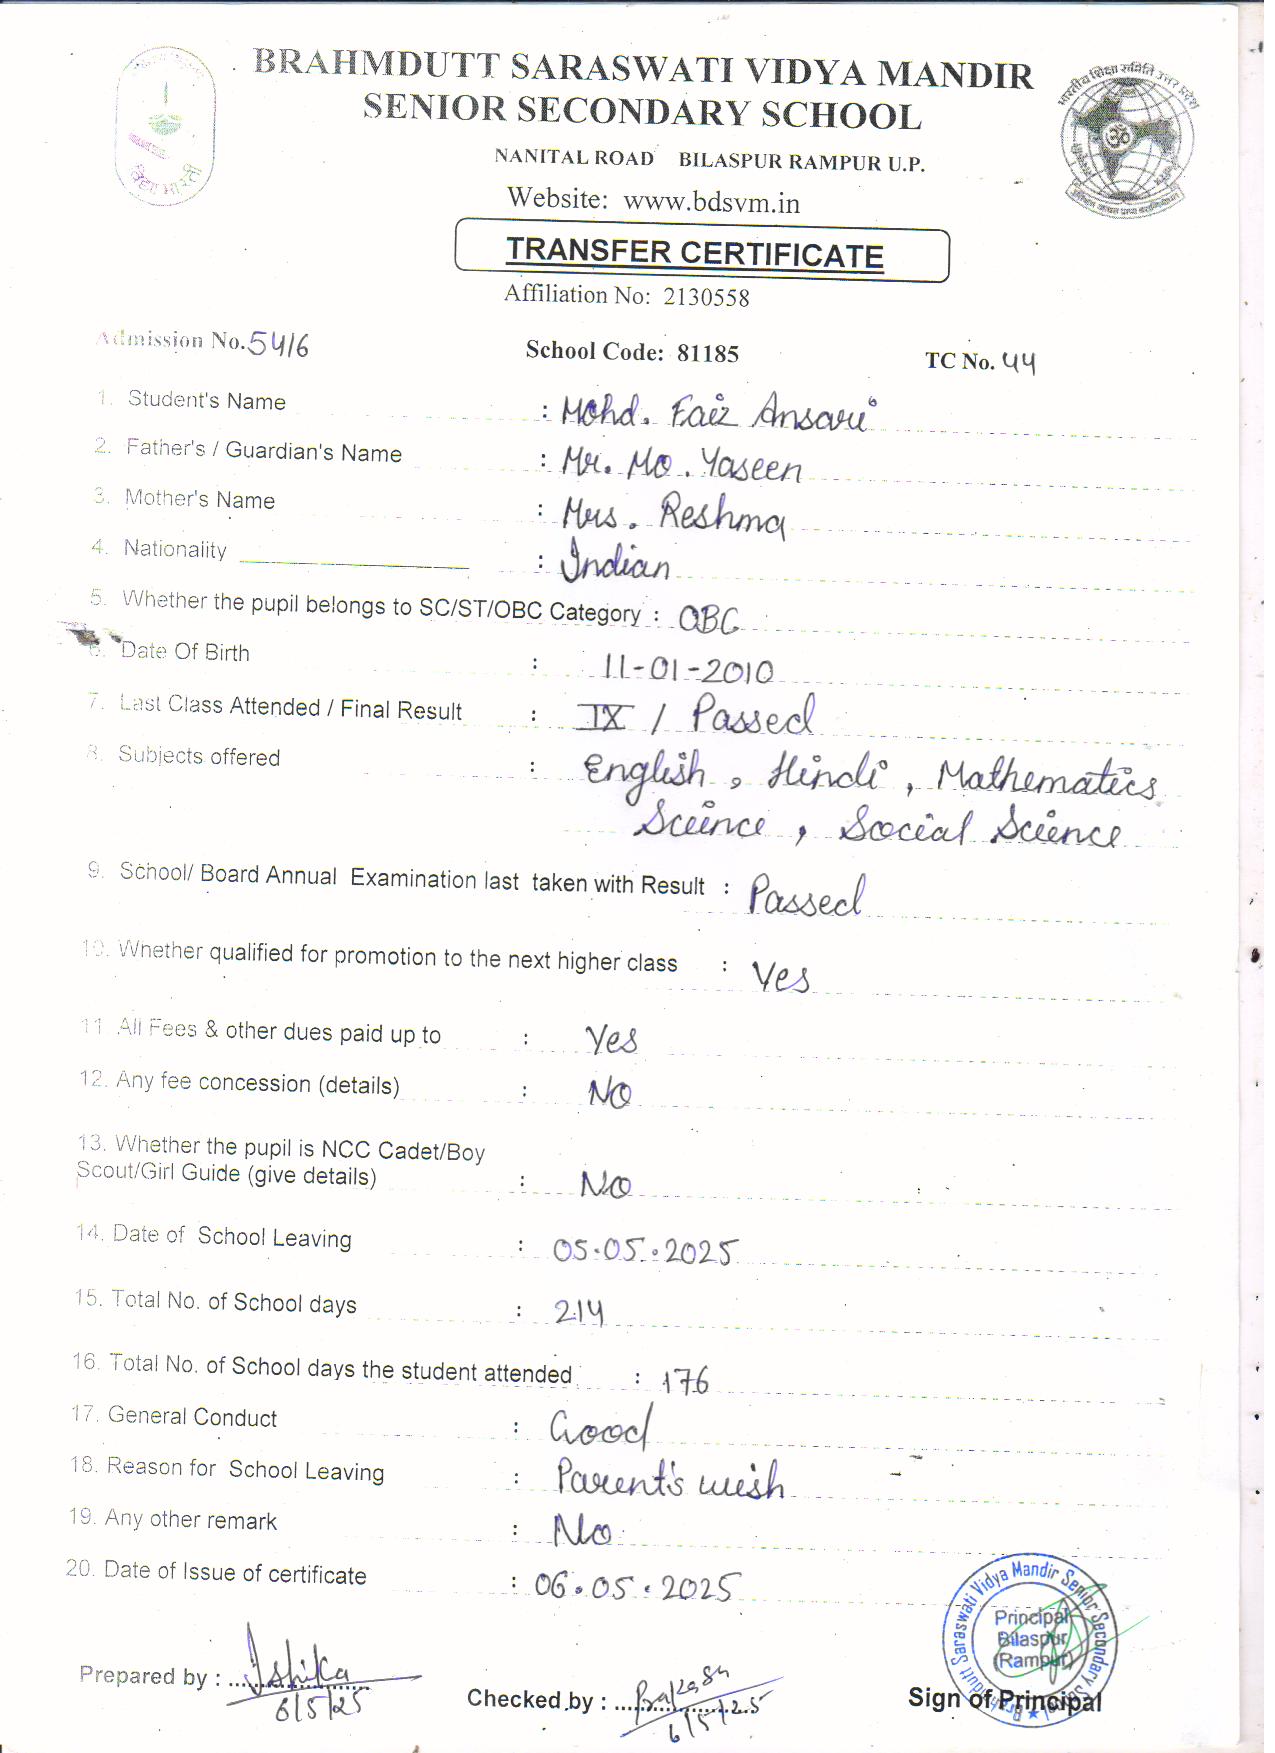 BRAHMDUTT SARASWATI VIDYA MANDIR
SENIOR SECONDARY SCHOOL
NANITAL ROAD BILASPUR RAMPUR U.P.
Website: www.bdsvm.in
विद्या भारती
भारतीय शिक्षा समिति उत्तर प्रदेश
TRANSFER CERTIFICATE
Affiliation No: 2130558
Admission No. 5416 School Code: 81185 TC No. 44
1. Student's Name : Mohd. Faiz Ansari
2. Father's / Guardian's Name : Mr. Mo. Yaseen
3. Mother's Name : Mrs. Reshma
4. Nationality : Indian
5. Whether the pupil belongs to SC/ST/OBC Category : OBC
6. Date Of Birth : 11-01-2010
7. Last Class Attended / Final Result : IX / Passed
8. Subjects offered : English, Hindi, Mathematics
Science, Social Science
9. School/ Board Annual Examination last taken with Result : Passed
10. Whether qualified for promotion to the next higher class : Yes
11. All Fees & other dues paid up to : Yes
12. Any fee concession (details) : NO
13. Whether the pupil is NCC Cadet/Boy
Scout/Girl Guide (give details) : NO
14. Date of School Leaving : 05.05.2025
15. Total No. of School days : 214
16. Total No. of School days the student attended : 176
17. General Conduct : Good
18. Reason for School Leaving : Parent's wish
19. Any other remark : No
20. Date of Issue of certificate : 06.05.2025
Brahmdutt Saraswati Vidya Mandir Senior Secondary School
Principal
Bilaspur
(Rampur)
Prepared by : Ishika
6/5/25
Checked by :
6/5/25
Sign of Principal